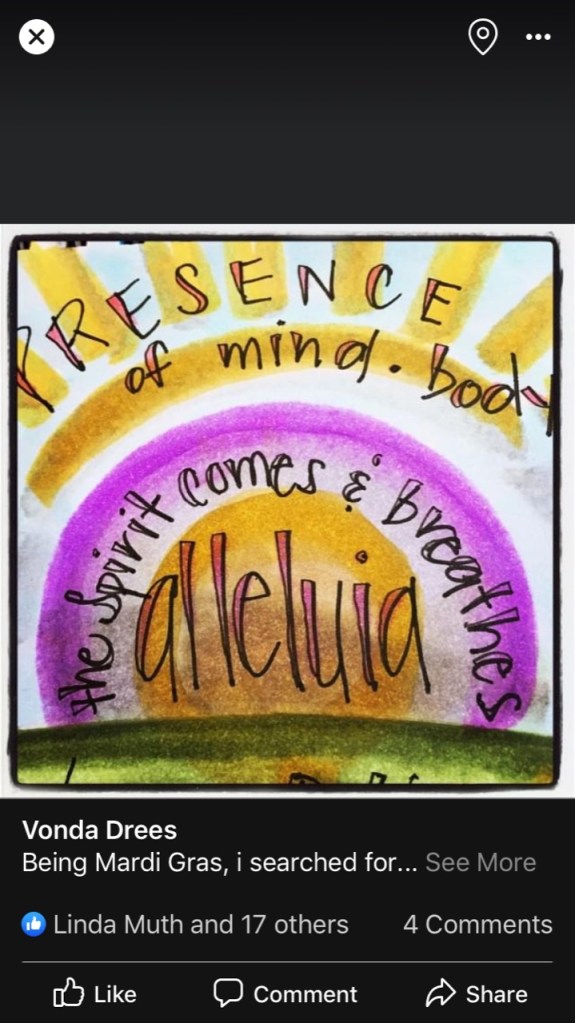 PRESENCE
of mind. body
the spirit comes & breathes
alleluia
Vonda Drees
Being Mardi Gras, i searched for... See More
Linda Muth and 17 others
4 Comments
Like
Comment
Share